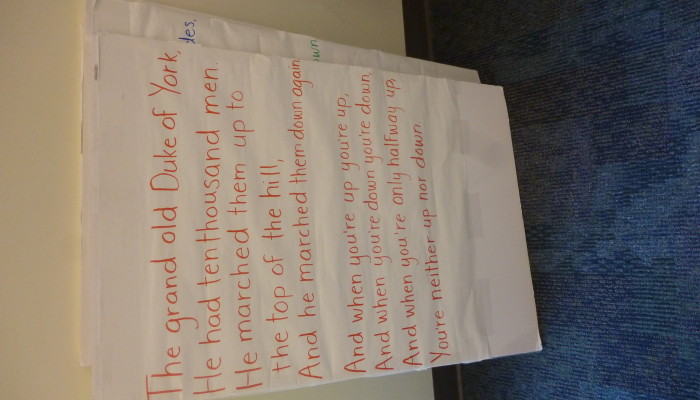 The grand old Duke of York,
He had ten thousand men.
He marched them up to
the top of the hill,
And he marched them down again
And when you're up you're up,
And when you're down you're down,
And when you're only halfway up,
You're neither up nor down.